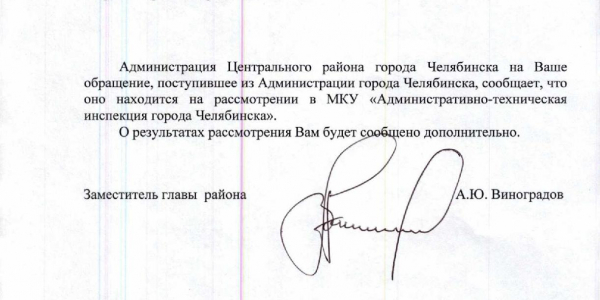 Администрация Центрального района города Челябинска на Ваше
обращение, поступившее из Администрации города Челябинска, сообщает, что
оно находится на рассмотрении в МКУ «Административно-техническая
инспекция города Челябинска».
О результатах рассмотрения Вам будет сообщено дополнительно.
Заместитель главы района А.Ю. Виноградов